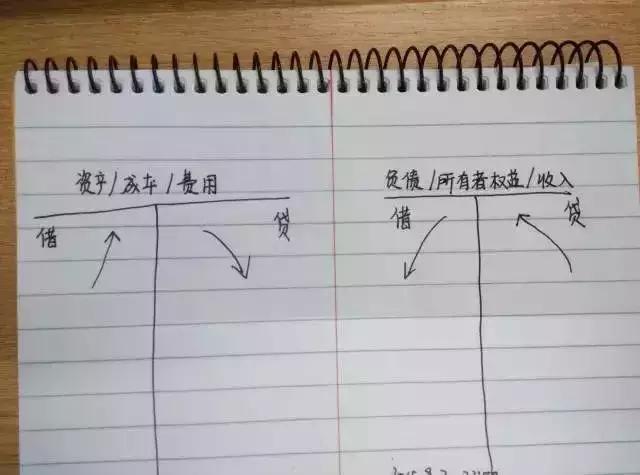 资产/成本/费用
借 贷
负债/所有者权益/收入
借 贷